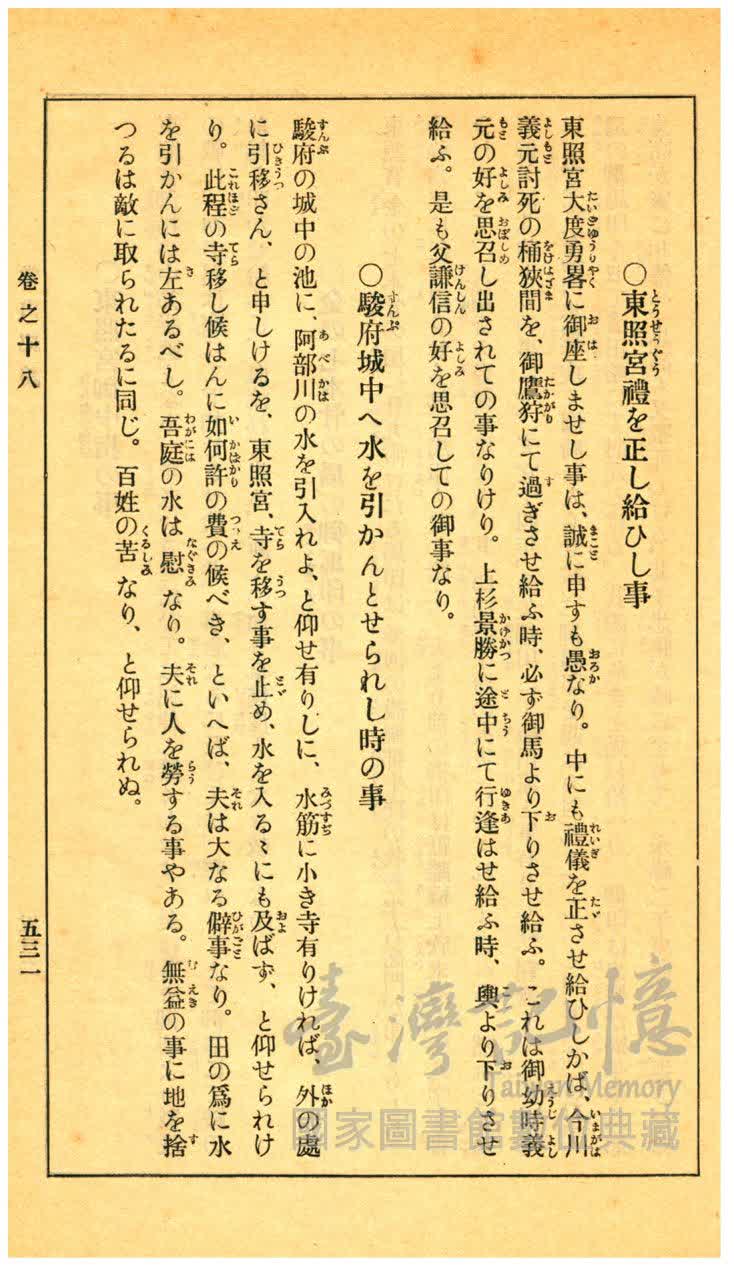 ○東照宮禮を正し給ひし事
東照宮大度勇畧に御座しませし事は、誠に申すも愚なり。中にも禮儀を正させ給ひしかば、今川
義元討死の桶狹間を、御鷹狩にて過ぎさせ給ふ時、必ず御馬より下りさせ給ふ。これは御幼時義
元の好を思召し出されての事なりけり。上杉景勝に途中にて行逢はせ給ふ時、輿より下りさせ
給ふ。是も父謙信の好を思召しての御事なり。
○駿府城中へ水を引かんとせられし時の事
駿府の城中の池に、阿部川の水を引入れよ、と仰せ有りしに、水筋に小き寺有りければ、外の處
に引移さん、と申しけるを、東照宮、寺を移す事を止め、水を入るゝにも及ばず、と仰せられけ
り。此程の寺移し候はんに如何許の費の候べき、といへば、夫は大なる僻事なり。田の爲に水
を引かんには左あるべし。吾庭の水は慰なり。夫に人を勞する事やある。無益の事に地を捨
つるは敵に取られたるに同じ。百姓の苦なり、と仰せられぬ。
卷之十八
五三一
臺灣記憶
Taiwan Memory
國家圖書館數位典藏